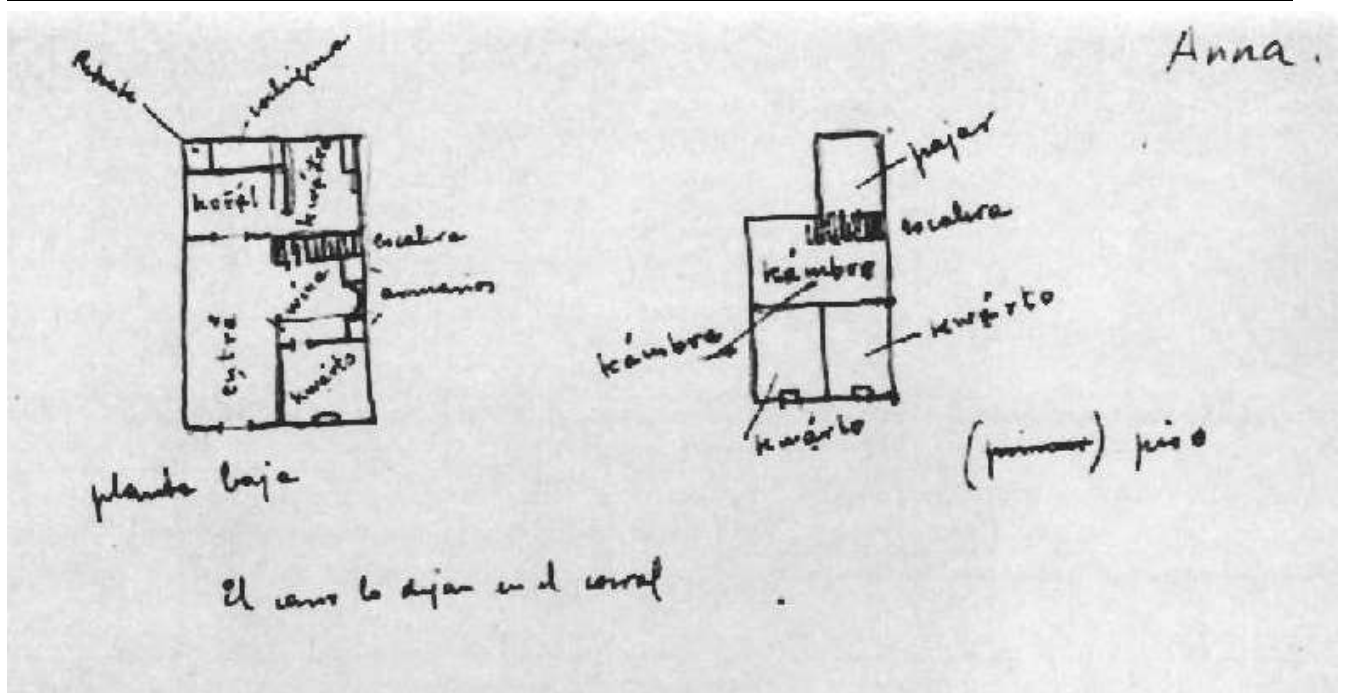 Anna.
Retrete
korál
kwátra
escalera
armarios
entrá
kwárto
planta baja
pajar
escalera
kámbra
kámbra
kwárto
kwárto
(primer) piso
El carro lo dejan en el corral